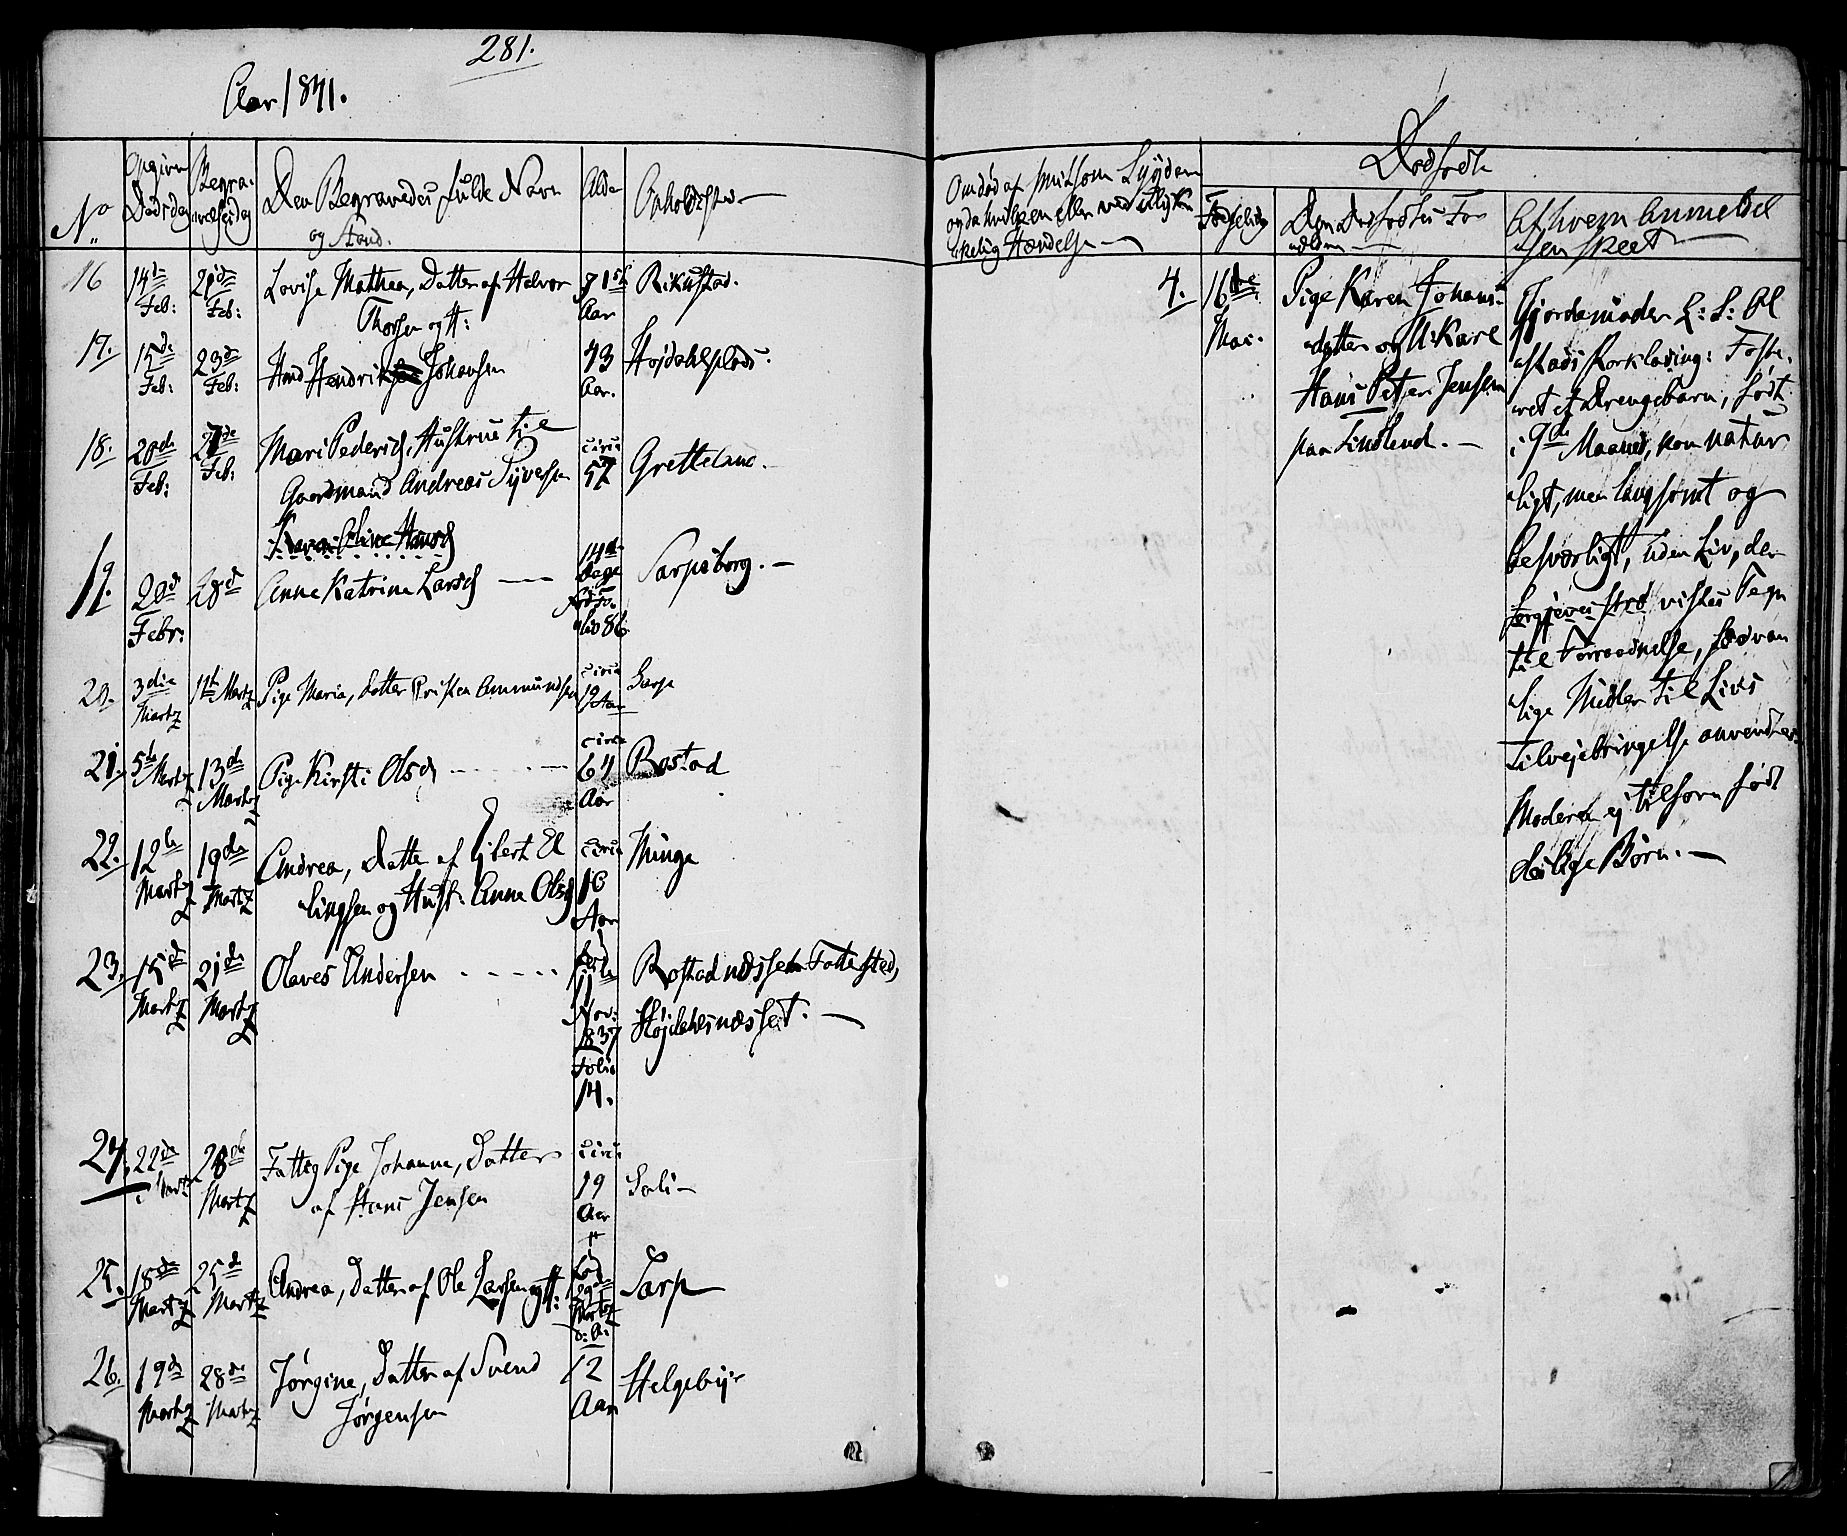 281.
Aar 1841.
No
Opgiven Dødsdag
Begravelsesdag
Den Begravedes fulde Navn
og Stand.
Alder
Opholdssted
16 14de Feb: 21de Feb: Lovise Mathea, Datter af Halvor Aar Rikustad.
Thorsen og H:
17. 15de Feb: 23de Feb: Hans Johansen 43 Aar. Højdahlsplads.
18. 20de Feb: 27de Feb: Mari Pedersd, Hustrue til circa 57 Gretteland.
Gaardmand Andreas Syversen
Karen Oline Hansd
19. 20de Febr: 28de Anne Katrine Larsd 14 Dage Folio 86 Sarpsborg.
20. 3die Martz 11te Martz Pige Maria, Datter Kristen Ammundsen circa 19 Aar Sarp
21. 5te Martz 13de Martz Pige Kirsti Olsd circa 64 Aar Rostad
22. 12te Martz 19de Martz Andrea, Datter af Gjbert El circa 16 Aar Minge
lingsen og Hust: Anne Olsd
23. 15de Martz 21de Martz Olaves Andersen født 11 Nov: 1837 Folio 14. Rostadnæsset Fattested,
Højdehlsnæsset.
24. 22de Martz 28de Martz Fattig Pige Johanne, Datter circa 19 Aar Soli
af Hans Jensen
25. 18de Martz 25de Martz Andrea, Datter af Ole Larsen og H: Født Martz d: A: Sarp
26. 19de Martz 28de Martz Jørgine, Datter af Svend 12 Aar Helgebye
Jørgensen
Om død af smitsom Sygdom
og da hvilken eller ved ulyk
kelig Hændelse
Dødfødte
Fødselsdag
Den Dødfødtes For
ældre
Af hvem Anmeldel
sen skeet
4. 16de Mar. Pige Karen Johans
datter og Ukarl
Hans Petter Jensen
paa Lindlend.
Jordemoder L: L: Ol
stads Forklaring: Foste
ret et Drengebarn, født
i 9de Maaned, kom natur
ligt, men langsomt og
besværligt, uden Liv, der
forgjeves stod vistes Tegn
til Forraadnelse, sædvan
lige Midler til Livs
tilvejebringelse anvendtes.
Moderen ej tilforn født
deslige Børn.